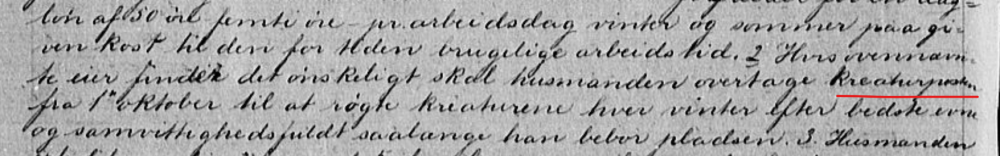 løn af 50 øre femti øre pr. arbeidsdag vinter og sommer paa gi-
ven kost til den for tiden brugelige arbeidstid. 2 Hvis ovennævn-
te eier finder det ønskeligt skal husmanden overtage kreaturposten
fra 1ste oktober til at røgte kreaturene hver vinter efter bedste evne
og samvittighedsfuldt saalænge han bebor pladsen. 3. Husmanden